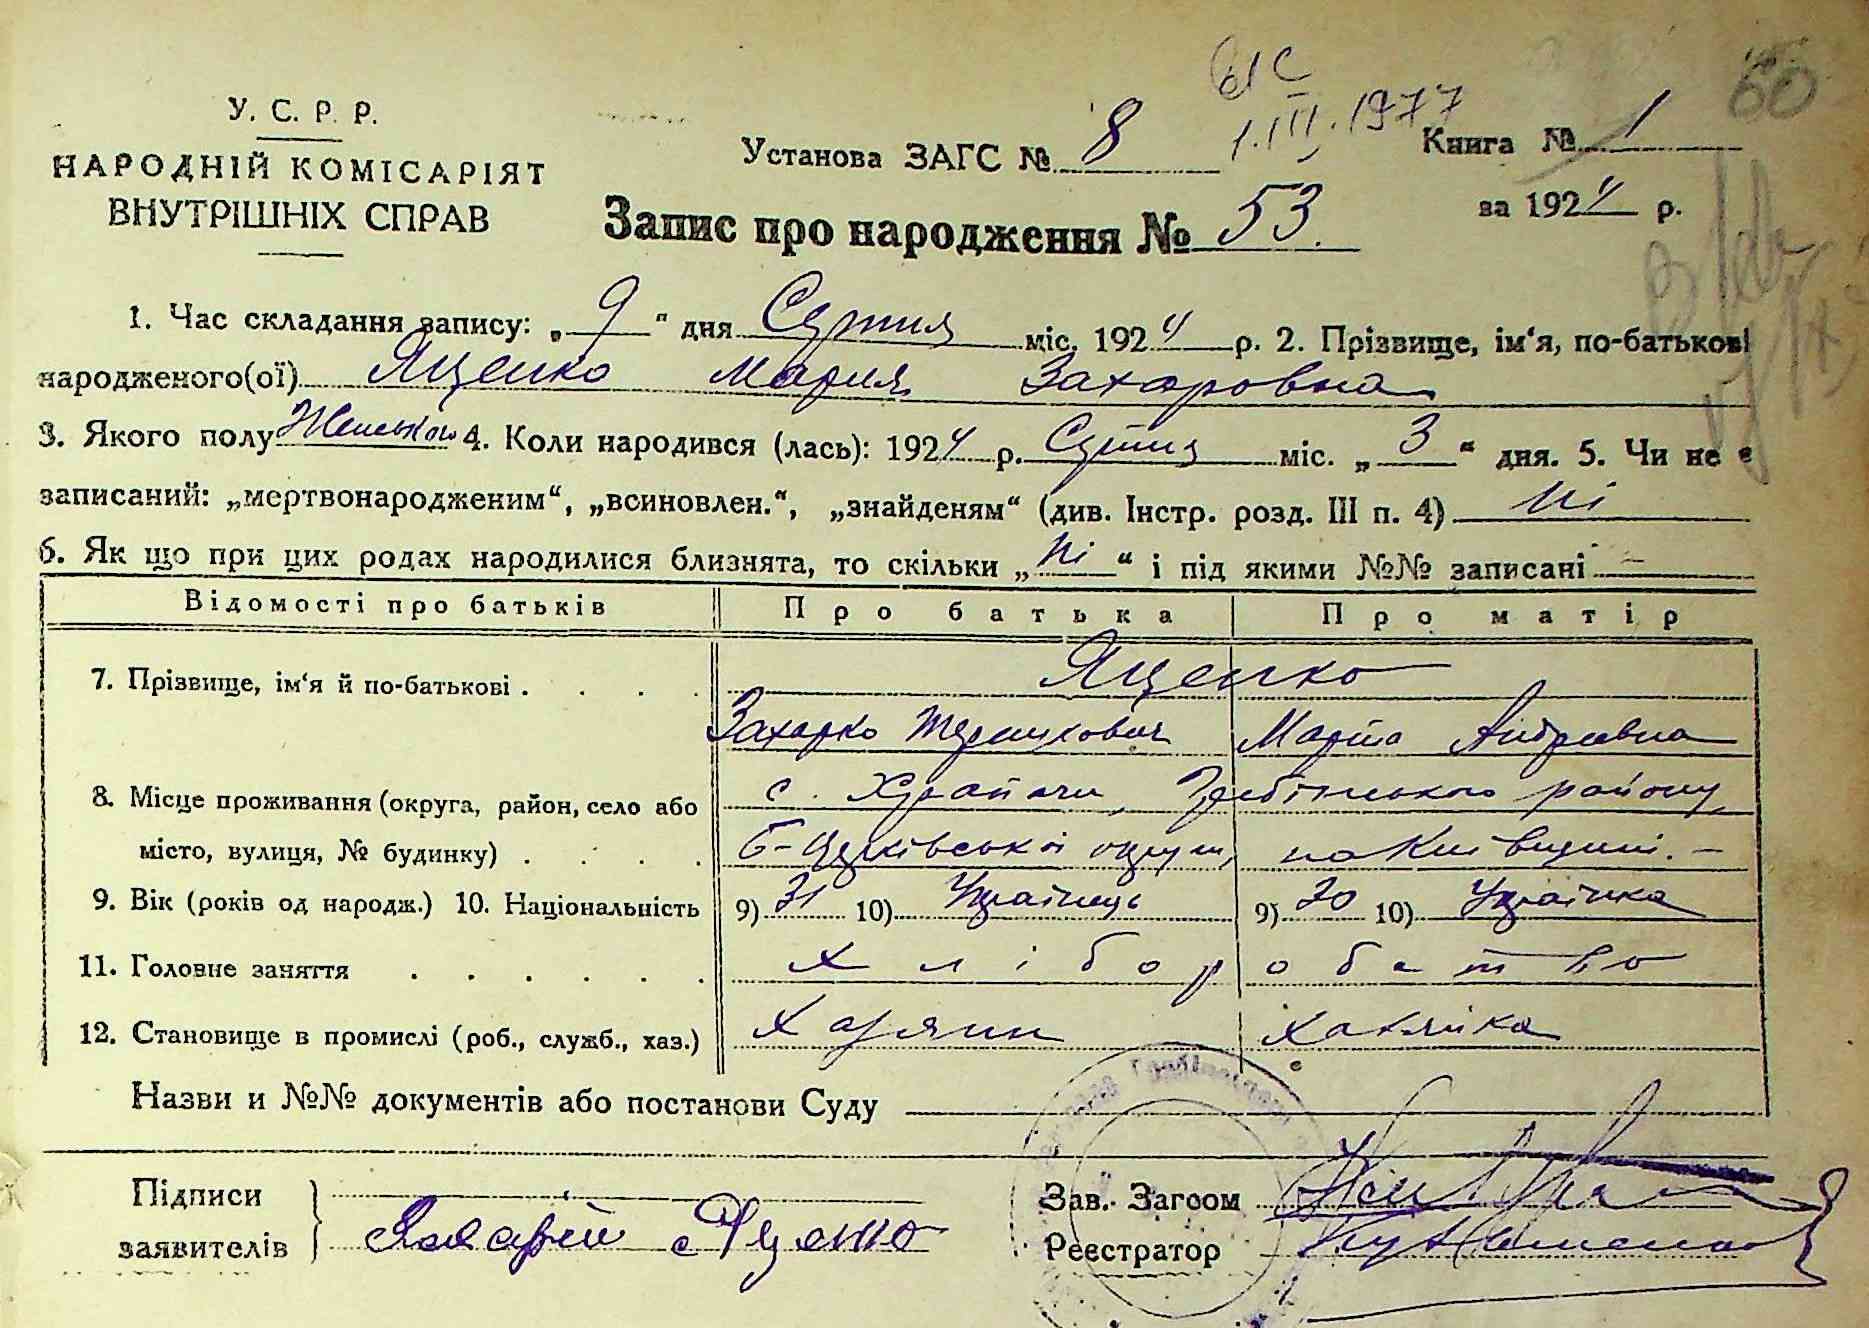 60
У. С. Р. Р.
НАРОДНІЙ КОМІСАРІЯТ
ВНУТРІШНІХ СПРАВ
Установа ЗАГС № 8
1.III.1977
Книга № 1
за 1924 р.
Запис про народження № 53.
1. Час складання запису: „ 9 " дня Січня міс. 1924 р. 2. Прізвище, ім'я, по-батькові
народженого(ої) Яценко Мария Захаровна
3. Якого полу 4. Коли народився (лась): 1924 р. Січня міс. „ 3 " дня. 5. Чи не є
записаний: „мертвонародженим", „всиновлен.", „знайденям" (див. Інстр. розд. III п. 4) ні
6. Як що при цих родах народилися близнята, то скільки „ ні " і під якими №№ записані —
Відомості про батьків Про батька Про матір
7. Прізвище, ім'я й по-батькові . . . . Яценко
Захарко Марта
8. Місце проживання (округа, район, село або с. району,
місто, вулиця, № будинку) . . . . Б-Церківської округи, на Київщині. —
9. Вік (років од народж.) 10. Національність 9) 31 10) Українець 9) 30 10) Українка
11. Головне заняття . . . . . . хліборобство
12. Становище в промислі (роб., служб., хаз.) хазяин хазяйка
Назви и №№ документів або постанови Суду
Підписи
заявителів Яценко
Зав. Загсом
Реєстратор